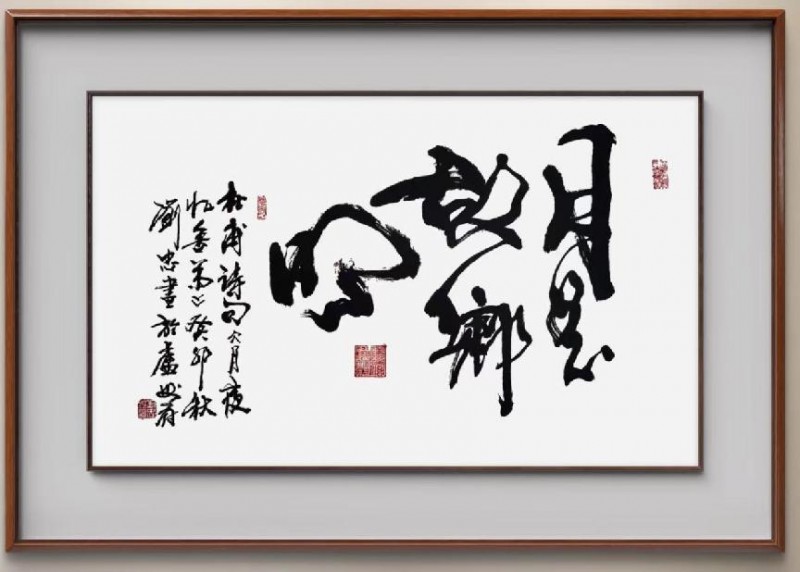 月是
故鄉
明
杜甫詩句《月夜
忆舍弟》癸卯秋
劉忠書於廬州